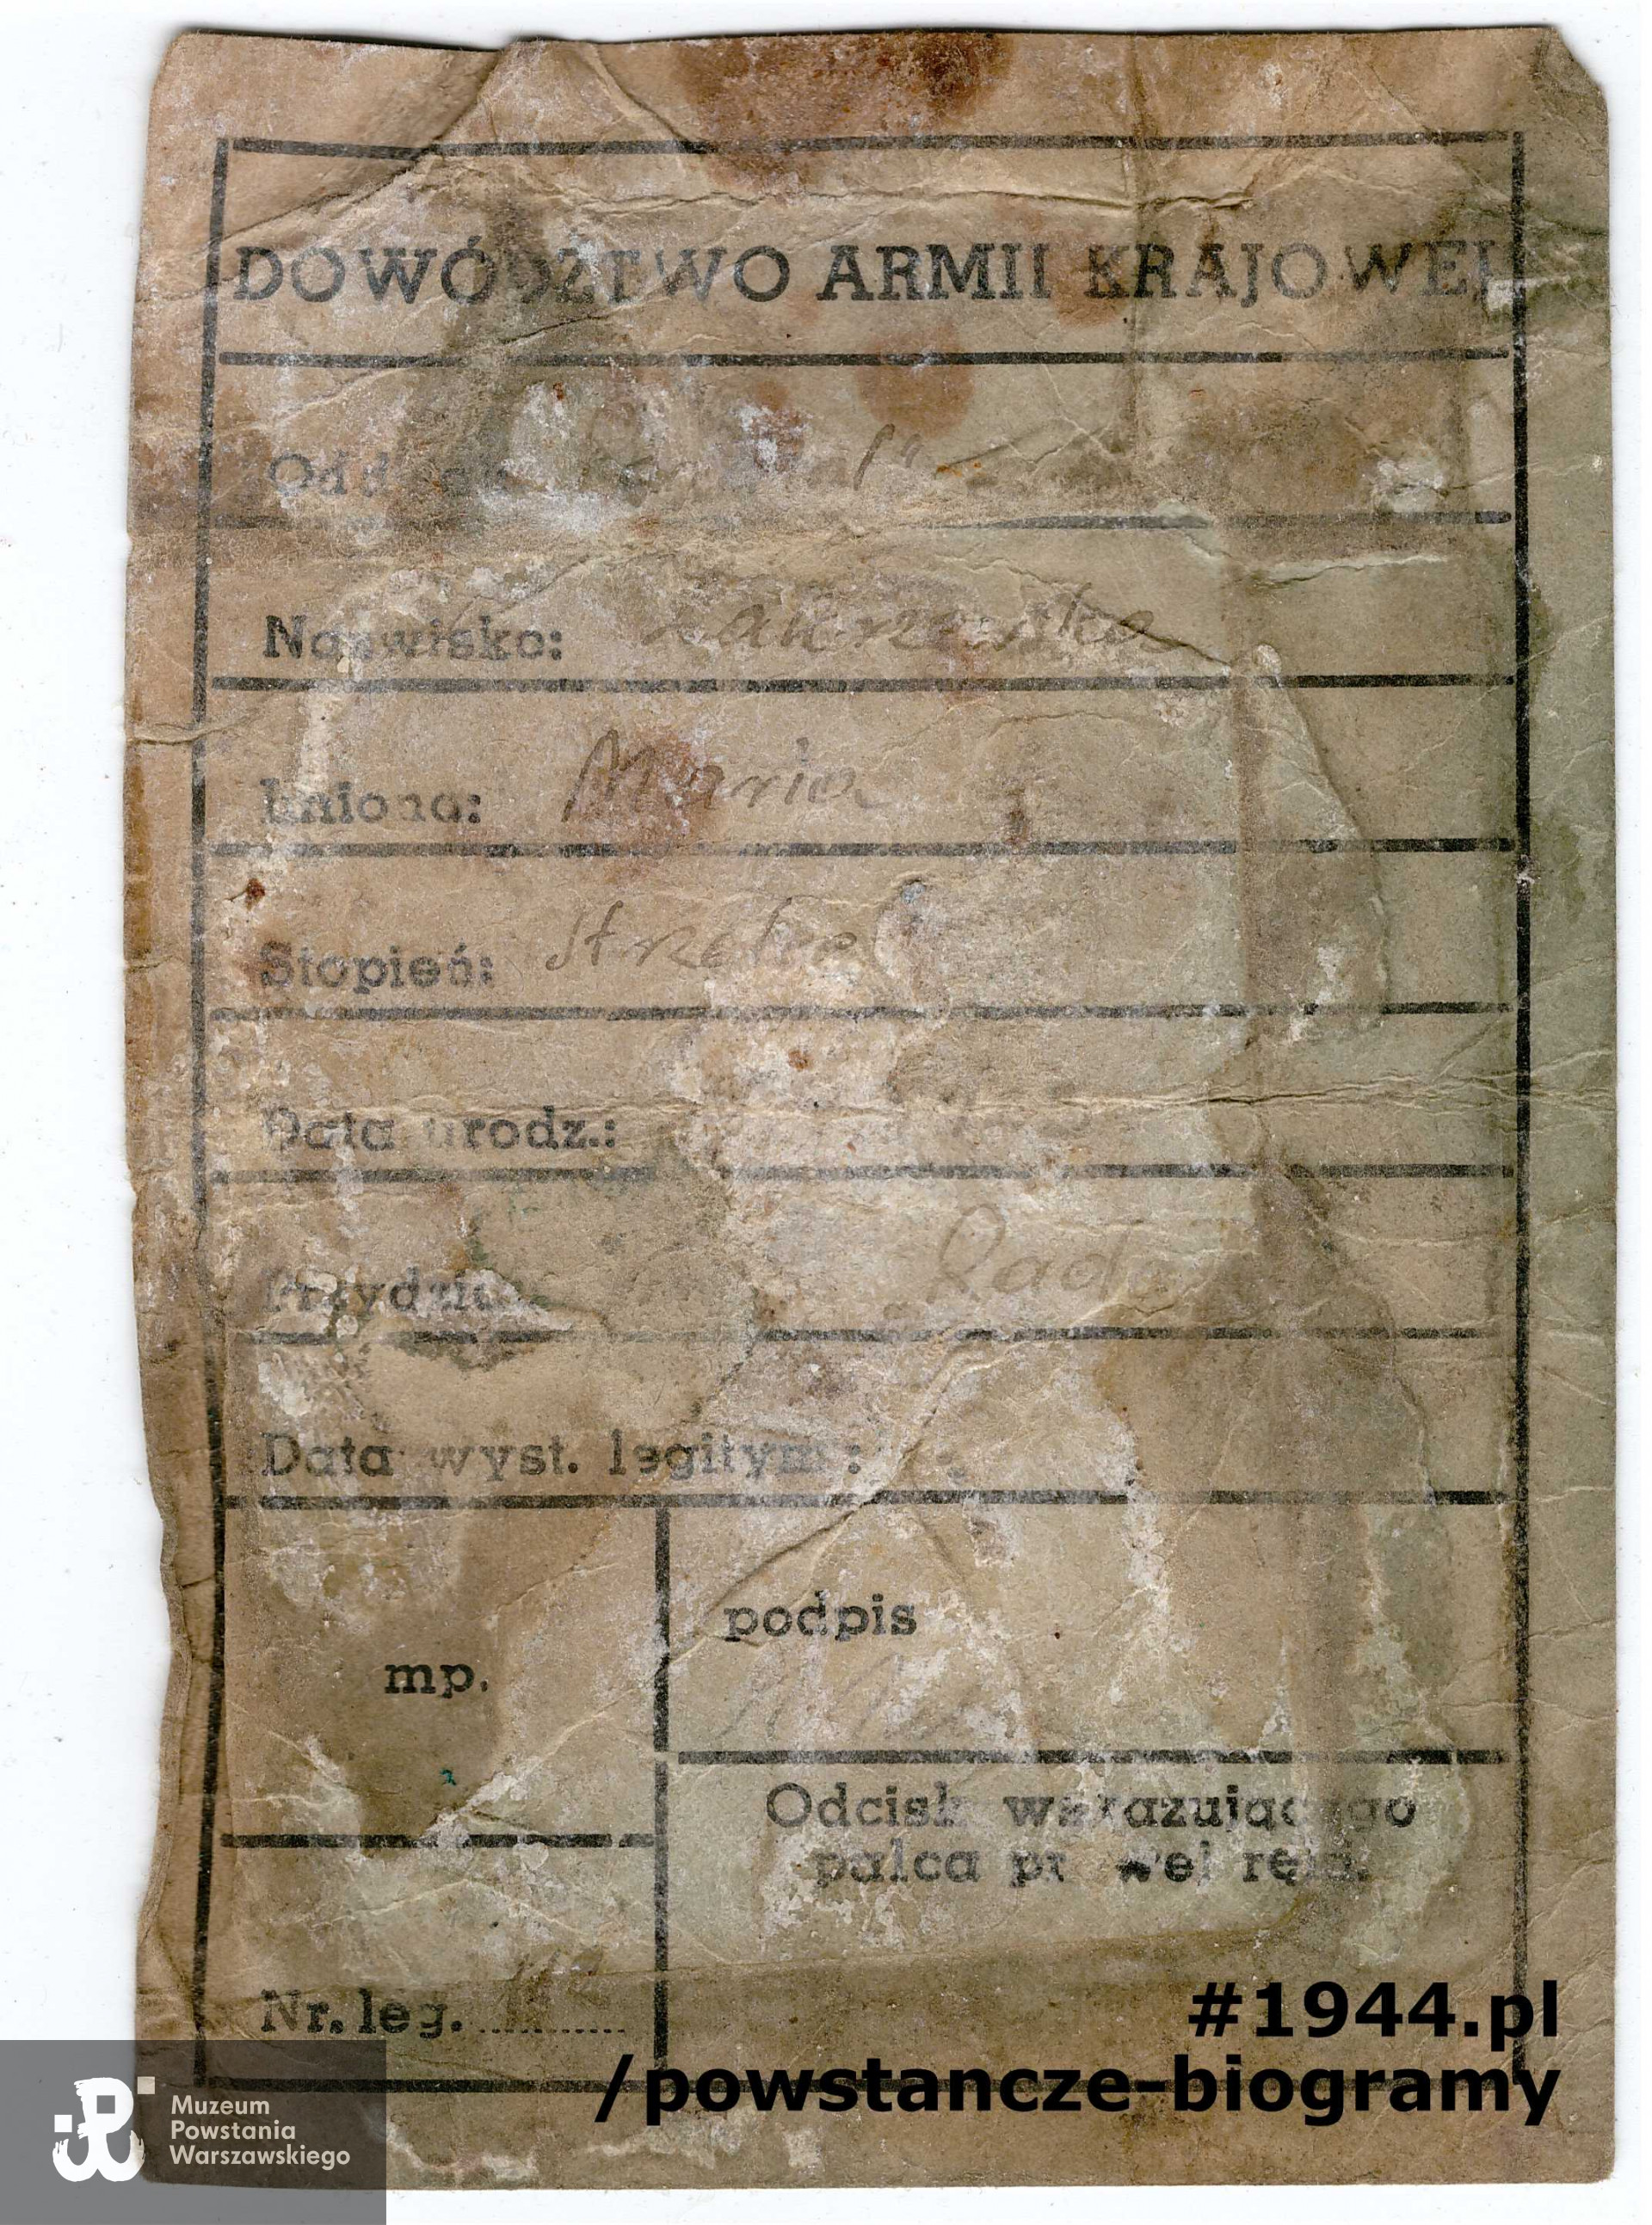 DOWÓDZTWO ARMII KRAJOWEJ
Oddział
Nazwisko: Zakrzewska
Imiona: Maria
Stopień: strzelec
Data urodz.:
Przydział
Data wyst. legitym.:
podpis
mp.
Odcisk wskazującego
palca prawej ręki.
Nr. leg. ..........
#1944.pl
/powstancze-biogramy
Muzeum
Powstania
Warszawskiego